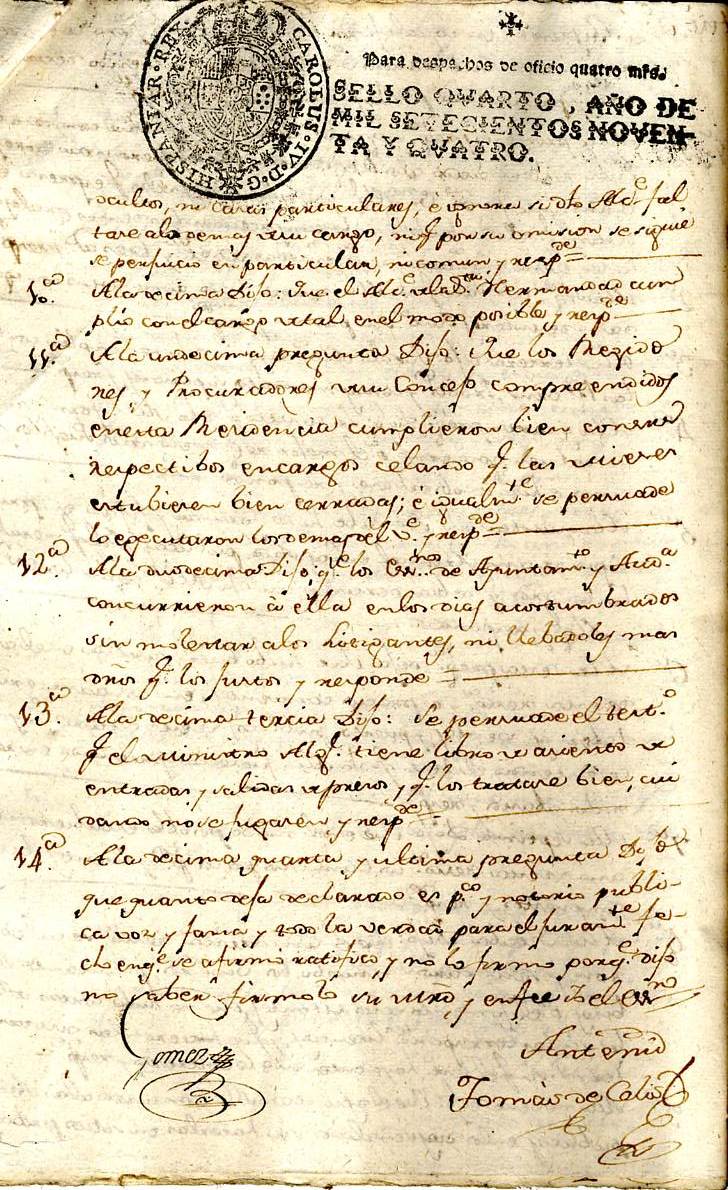 CAROLUS·IV·D·G· HISPANIAR·REX·
Para despachos de oficio quatro mrs.
SELLO QVARTO, AÑO DE
MIL SETECIENTOS NOVEN-
TA Y QVATRO.
ocultos, ni Casas particulares, é ignora si dho Alc.e fal
tase alo demas de su cargo, ni q.e por su omision se siguie
se perjuicio en particular, ni comun y resp.de
10.a Ala decima Dijo: Que el Alc.e de la S.ta Hermandad cum
plio con el cargo de tal en el modo posible y resp.de
11.a Ala undecima pregunta Dijo: Que los Rexido
res, y Procuradores de su Concejo compreendidos
en esta Residencia cumplieron bien con sus
respectibos encargos celando q.e las mieses
estubiesen bien cerradas; é igualm.te se persuade
lo egecutaron los demas del V.e y resp.de
12.a Ala duodecima Dijo: q.e los Ess.nos de Ayuntam.to y Aud.a
concurrieron á ella en los dias acostumbrados
sin molestar alos Litigantes, ni llebadoles mas
dros q.e los justos y responde
13.a Ala decima tercia Dijo: Se persuade el test.o
q.e el Ministro Alg.l tiene libro de asiento de
entradas y salidas de presos y q.e los tratase bien, cui
dando no se fugasen, y resp.de
14.a Ala decima quarta y ultima pregunta Dijo
que quanto deja declarado es p.co y notorio publi-
ca voz y fama y todo la verdad para el juram.te fe-
cho en q.e se afirmó ratificó, y no lo firmó porq.e dijo
no saber firmolo su mrd, y en fee de ello el Ess.no
Antemi
Gomez
Tomás de Celis